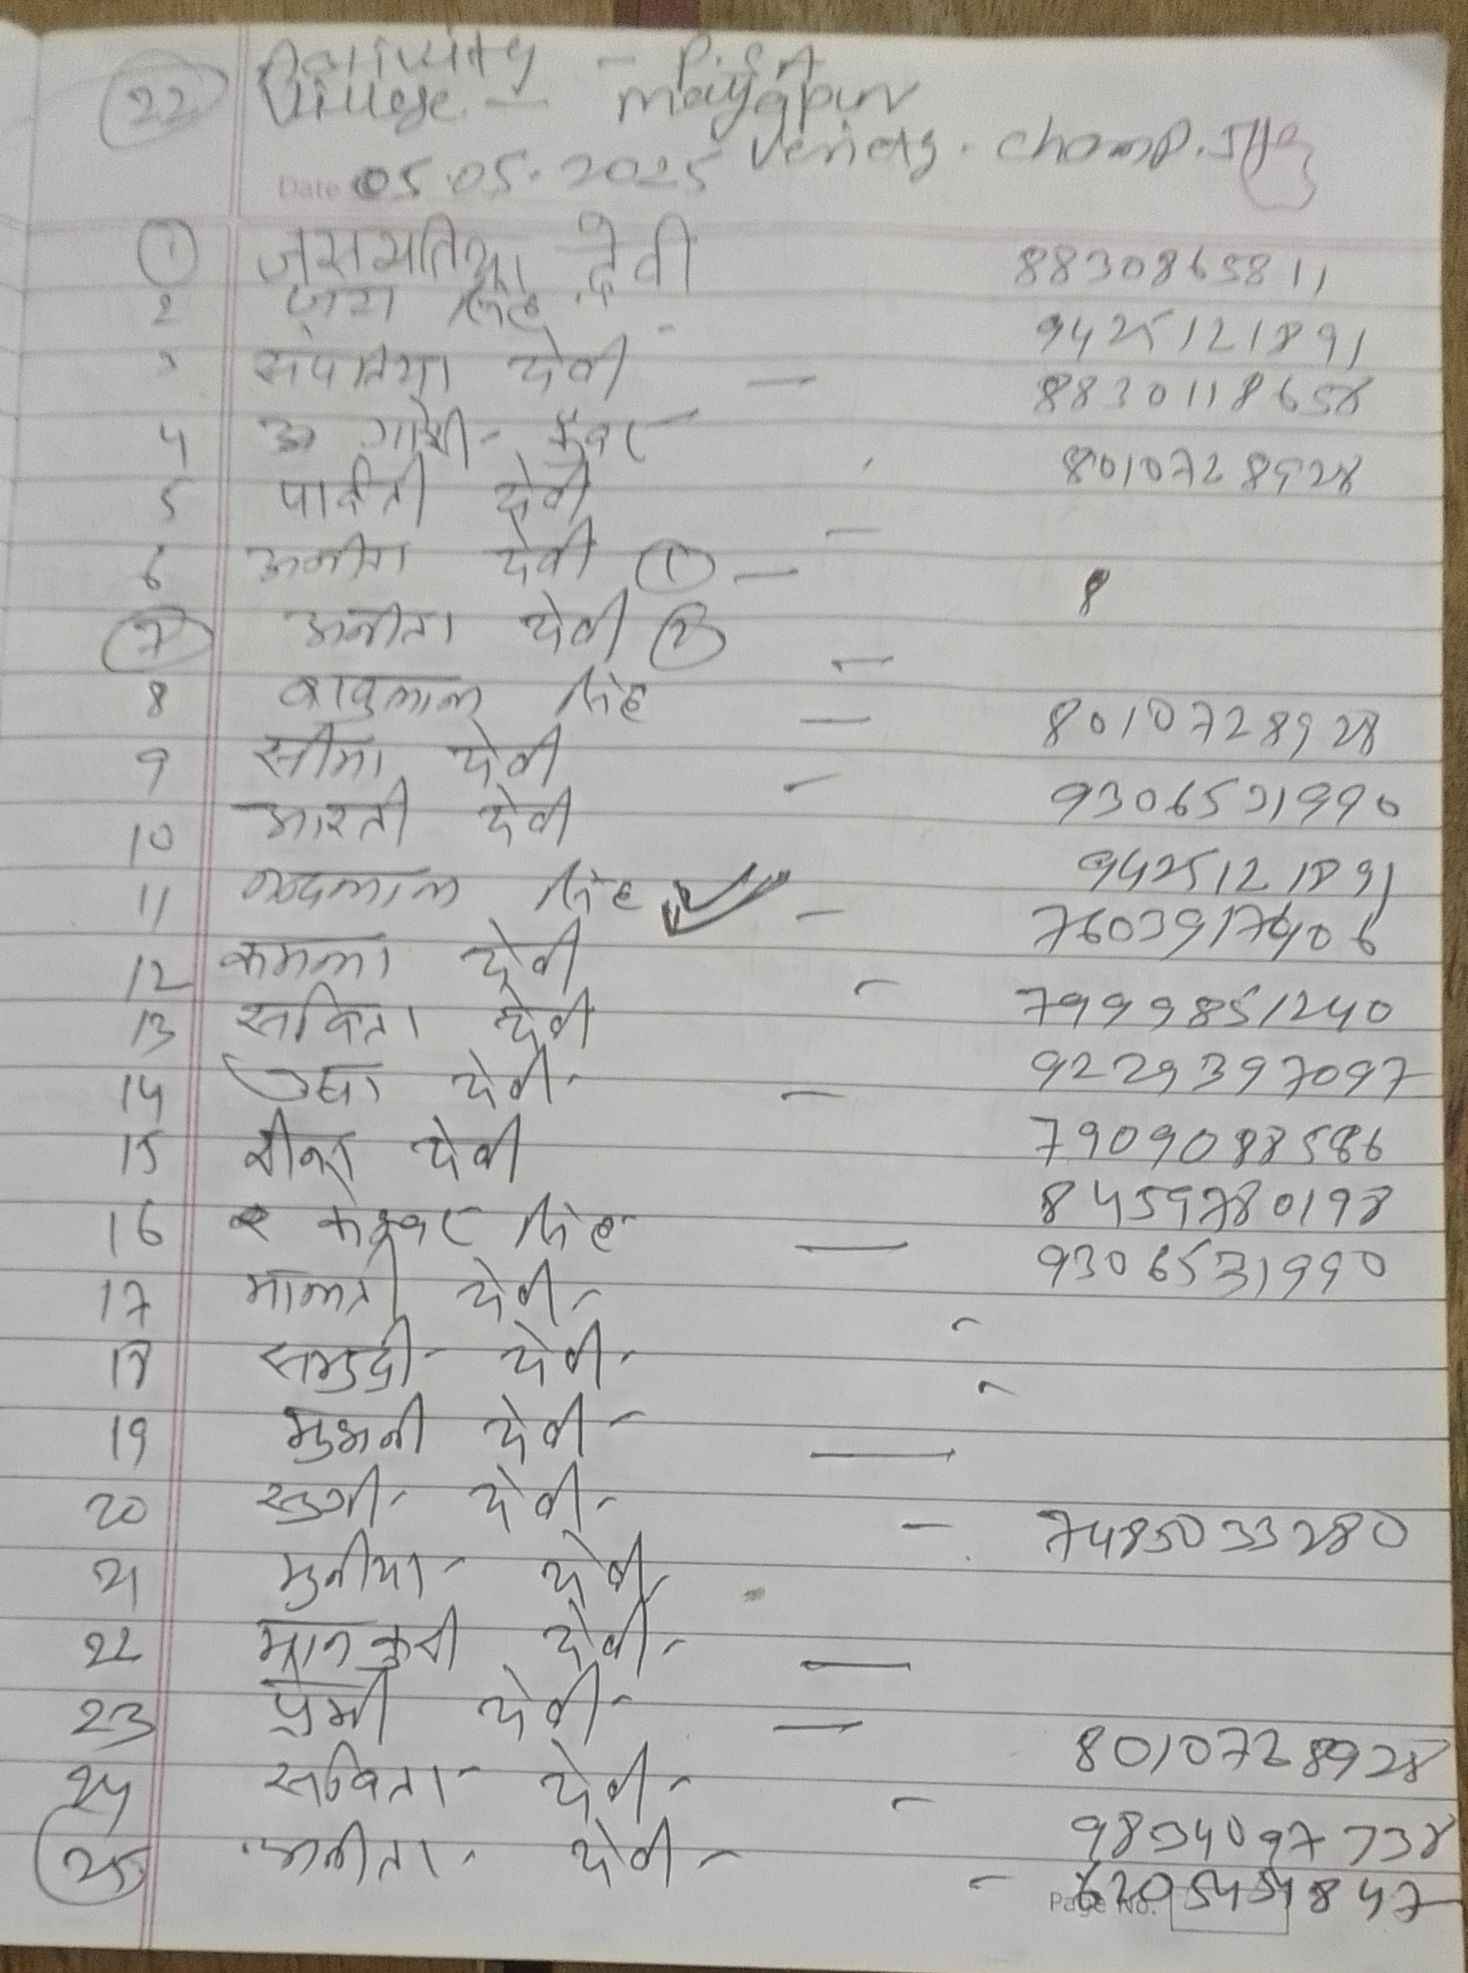 22 Activity - P.S.A
Village - mayapur
Veriety. champ.
Date 05.05.2025
① जसमतिया देवी 8830865811
2 जय सिंह 9425121891
3 संपतिया देवी — 8830118658
4 कुँवर 8010728928
5 पार्वती देवी —
6 अनीता देवी ① — 8
7 अनीता देवी ② —
8 बाबुलाल सिंह — 8010728928
9 सीमा देवी - 9306531990
10 आरती देवी 9425121891
11 नन्दलाल सिंह - 7603917406
12 कमला देवी - 7999851240
13 सविता देवी 9229397097
14 देवी - 7909088586
15 देवी 8459780198
16 सिंह — 9306531990
17 मालती देवी -
18 समुद्री देवी -
19 देवी —
20 सुगी देवी - 7485033280
21 मुनीया देवी
22 मानकुवी देवी —
23 प्रेमी देवी — 8010728928
24 सविता देवी - 9834097738
25 अनीता देवी - 6205454847
Page No.